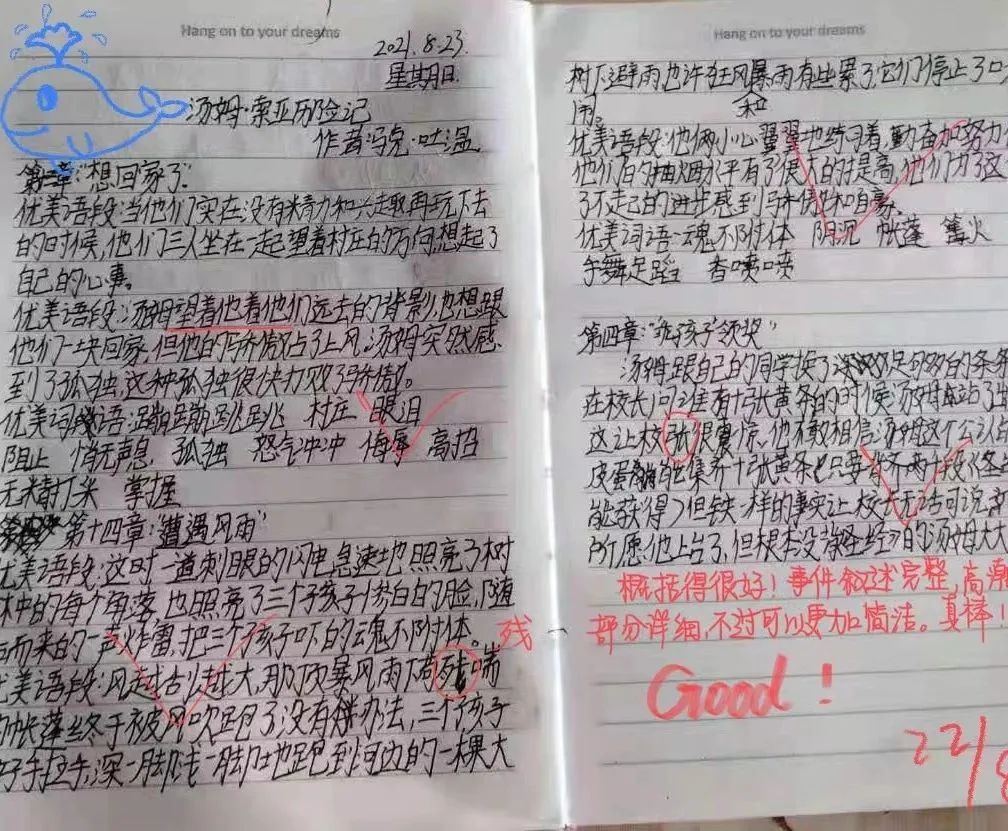 Hang on to your dreams
2021.8.23.
星期日.
汤姆·索亚历险记
作者:马克·吐温
第三章:"想回家了"
优美语段:当他们实在没有精力和兴趣再玩下去
的时候,他们三人坐在一起望着村庄的方向,想起了
自己的心事。
优美语段:汤姆望着他着他们远去的背影,也想跟
他们一块回家,但他的骄傲占了上风,汤姆突然感
到了孤独,这种孤独很快打败了骄傲。
优美词语:蹦蹦跳跳 村庄 眼泪
阻止 悄无声息 孤独 怒气冲冲 侮辱 高招
无精打采 掌握
第十四章:"遭遇风雨"
优美语段:这时一道刺眼的闪电急速地照亮了树
林中的每个角落,也照亮了三个孩子惨白的脸,随
后而来的一声炸雷,把三个孩子吓的魂不附体。
残
优美语段:风越刮越大,那顶暴风雨下苟残喘
的帐篷终于被风吹跑了,没有办法,三个孩子
好手拉手,深一脚浅一脚地跑到河边的一棵大
Hang on to your dreams
树下避雨,也许狂风暴雨有些累了,它们停止了
雨。
和
优美语段:他俩小心翼翼地练习着,勤奋加努力
他们后的抽烟水平有了很大的提高,他们为了这
了不起的进步感到骄傲和自豪。
优美词语:魂不附体 阴沉 帐篷 篝火
手舞足蹈 香喷喷
第四章:"乖孩子"领奖
汤姆跟自己的同学换了足够多的条
在校长问谁有十张黄条的时候,汤姆站了
这让校张很震惊,他不敢相信汤姆这个公认
皮蛋能集齐十张黄条也只要背不两千段《圣
能获得)但铁一样的事实让校长无话可说,
所愿他上台了,但根本没背圣经的汤姆大
概括得很好!事件叙述完整,高潮
部分详细,不过可以更加简洁。真棒!
Good!
22/8